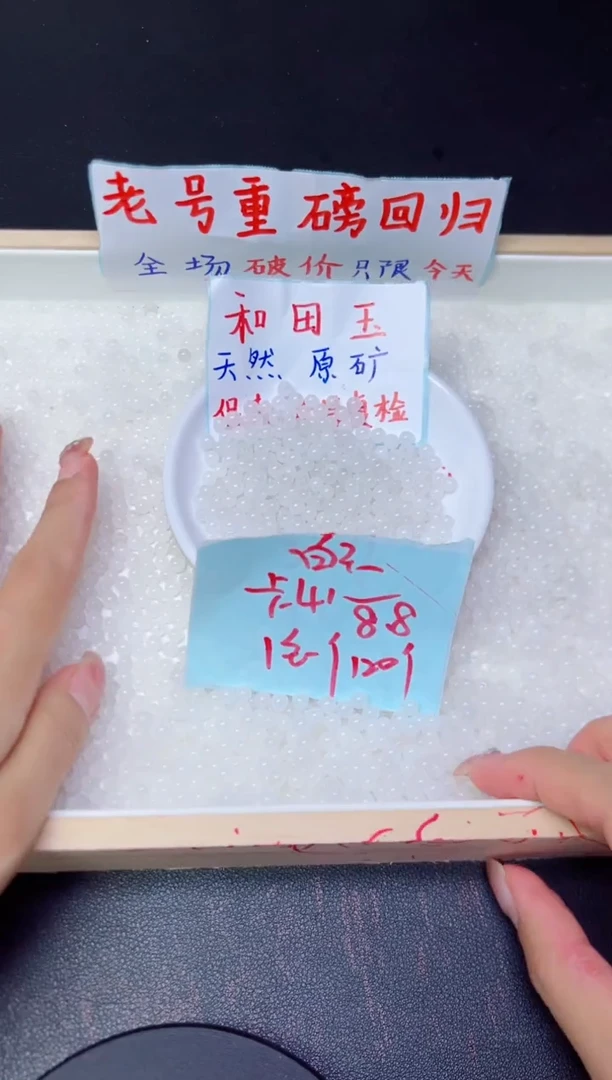 老号重磅回归
全场破价只限今天
和田玉
天然 原矿
保 复检
88
1包 120